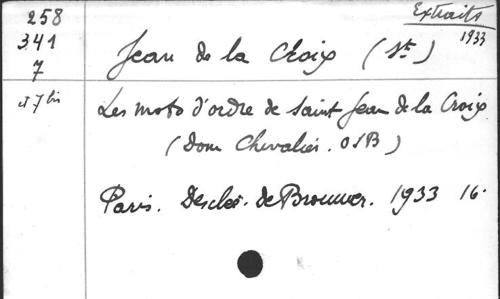 258
341
7
et 7 bis
Extraits
1933
Jean de la Croix (St)
Les mots d'ordre de Saint Jean de la Croix
(Dom Chevalier. OSB)
Paris. Desclée. de Brouwer. 1933 16.